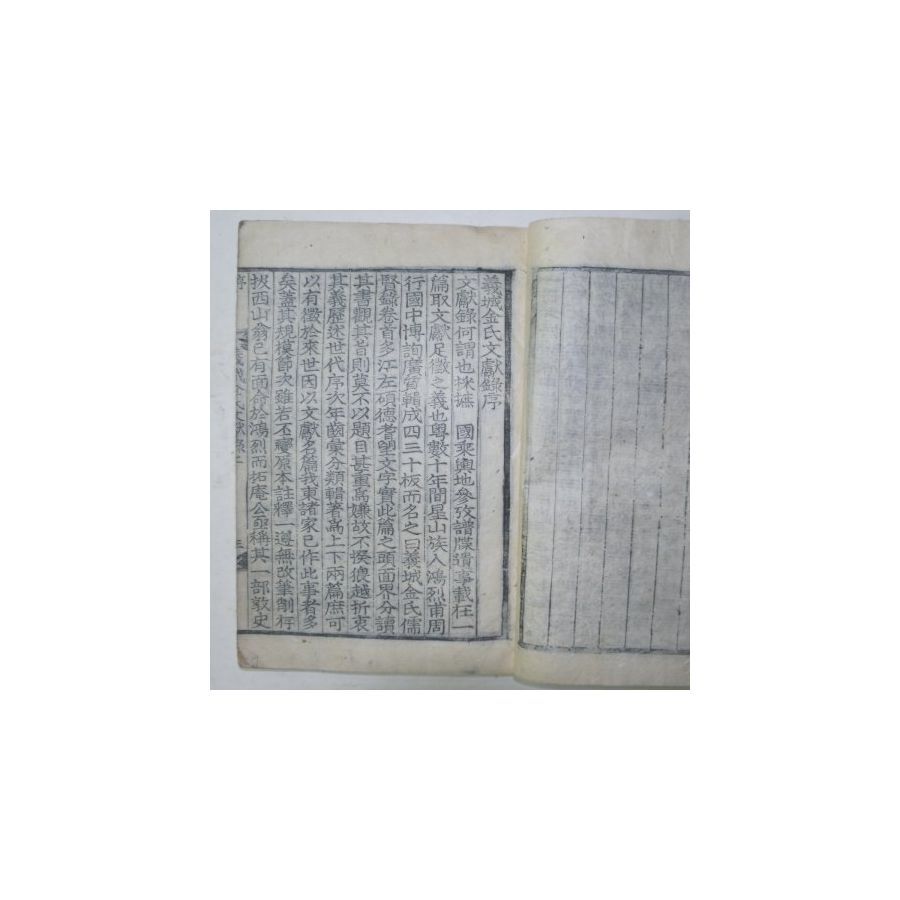 義城金氏文獻錄序
文獻錄何謂也採摭 國乘輿地參攷譜牒遺事載在一
篇取文獻足徵之義也粤數十年間星山族人鴻烈甫周
行國中博詢廣質輯成四三十板而名之曰義城金氏儒
賢錄卷首多江左碩德耆望文字實此篇之頭面界分讀
其書觀其旨則莫不以題目甚重爲嫌故不揆猥越折衷
其義歷述世代序次年齒彙分類輯著爲上下兩篇庶可
以有徵於來世因以文獻名篇我東諸家已作此事者多
矣蓋其規模節次雖若丕變原本註釋一遵無改筆削存
拔西山翁已有面命於鴻烈而拓庵公亟稱其一部敦史
序 義城金氏文獻錄 三